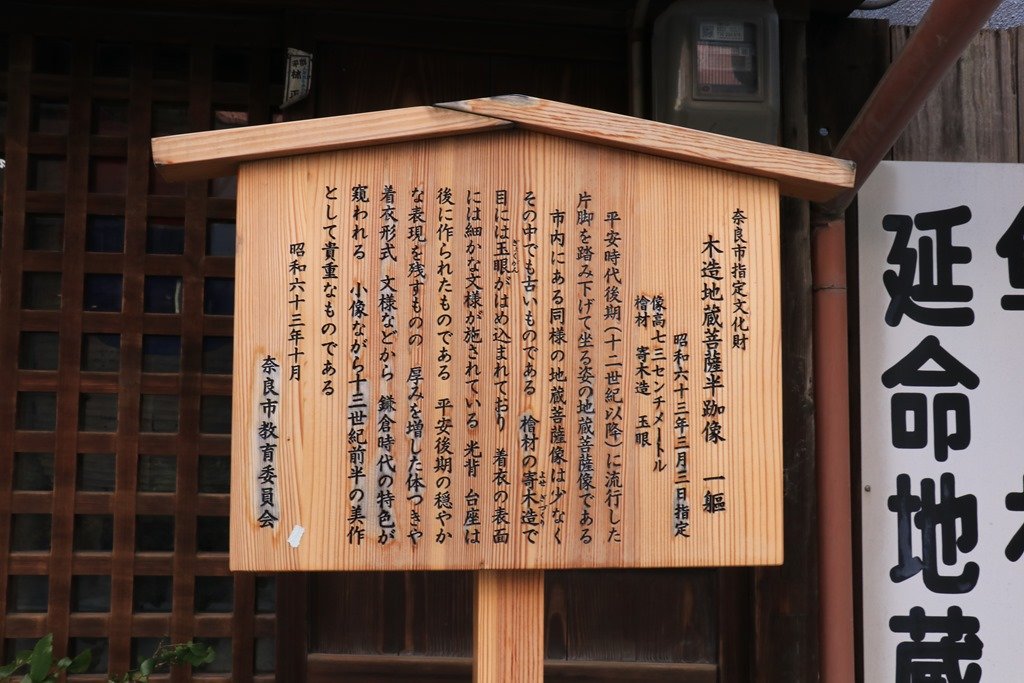 奈良市指定文化財
木造地蔵菩薩半跏像 一軀
昭和六十三年三月三日指定
像高七三センチメートル
檜材 寄木造 玉眼
平安時代後期(十二世紀以降)に流行した
片脚を踏み下げて坐る姿の地蔵菩薩像である
市内にある同様の地蔵菩薩像は少なく
その中でも古いものである 檜材の寄木造で
よせぎづくり
目には玉眼がはめ込まれており 着衣の表面
ぎょくがん
には細かな文様が施されている 光背 台座は
後に作られたものである 平安後期の穏やか
な表現を残すものの 厚みを増した体つきや
着衣形式 文様などから 鎌倉時代の特色が
窺われる 小像ながら十三世紀前半の美作
として貴重なものである
昭和六十三年十月
奈良市教育委員会
延命地蔵